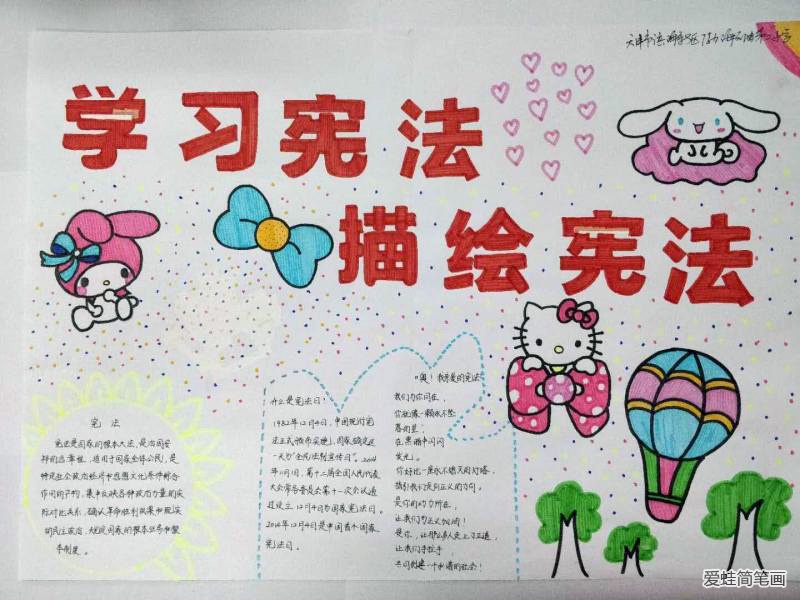 天津市滨海新区
学习宪法
描绘宪法
宪法
宪法是国家的根本大法,是治国安
邦的总章程,适用于国家全体公民,是
特定社会政治经济和思想文化条件综合
作用的产物,集中反映各种政治力量的实
际对比关系,确认革命胜利成果和现实
的民主政治,规定国家的根本任务和根
本制度。
什么是宪法日:
1982年12月4日,中国现行宪
法正式颁布实施,国家确定这
一天为"全民法制宣传日"。2014
年11月1日,第十二届全国人民代表
大会常务委员会第十一次会议通
过设立12月4日为国家宪法日。
2014年12月4日是中国首个国家
宪法日。
啊!我亲爱的宪法
我们为你问在,
你就像一颗永不坠
落的星,
在黑暗中闪闪
发光。
你好比一座永不熄灭的灯塔,
指引我们走向正义的方向。
是你的动力所在,
让我们为正义加油!
是你,让
让我们手拉手,
共同创建一个和谐的社会!
爱蛙简笔画